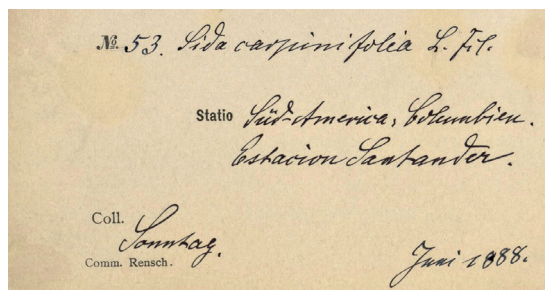 № 53. Sida carpinifolia L. Fil.
Statio Süd-America, Columbien.
Estacion Santander.
Coll. Sonntag.
Comm. Rensch.
Juni 1888.